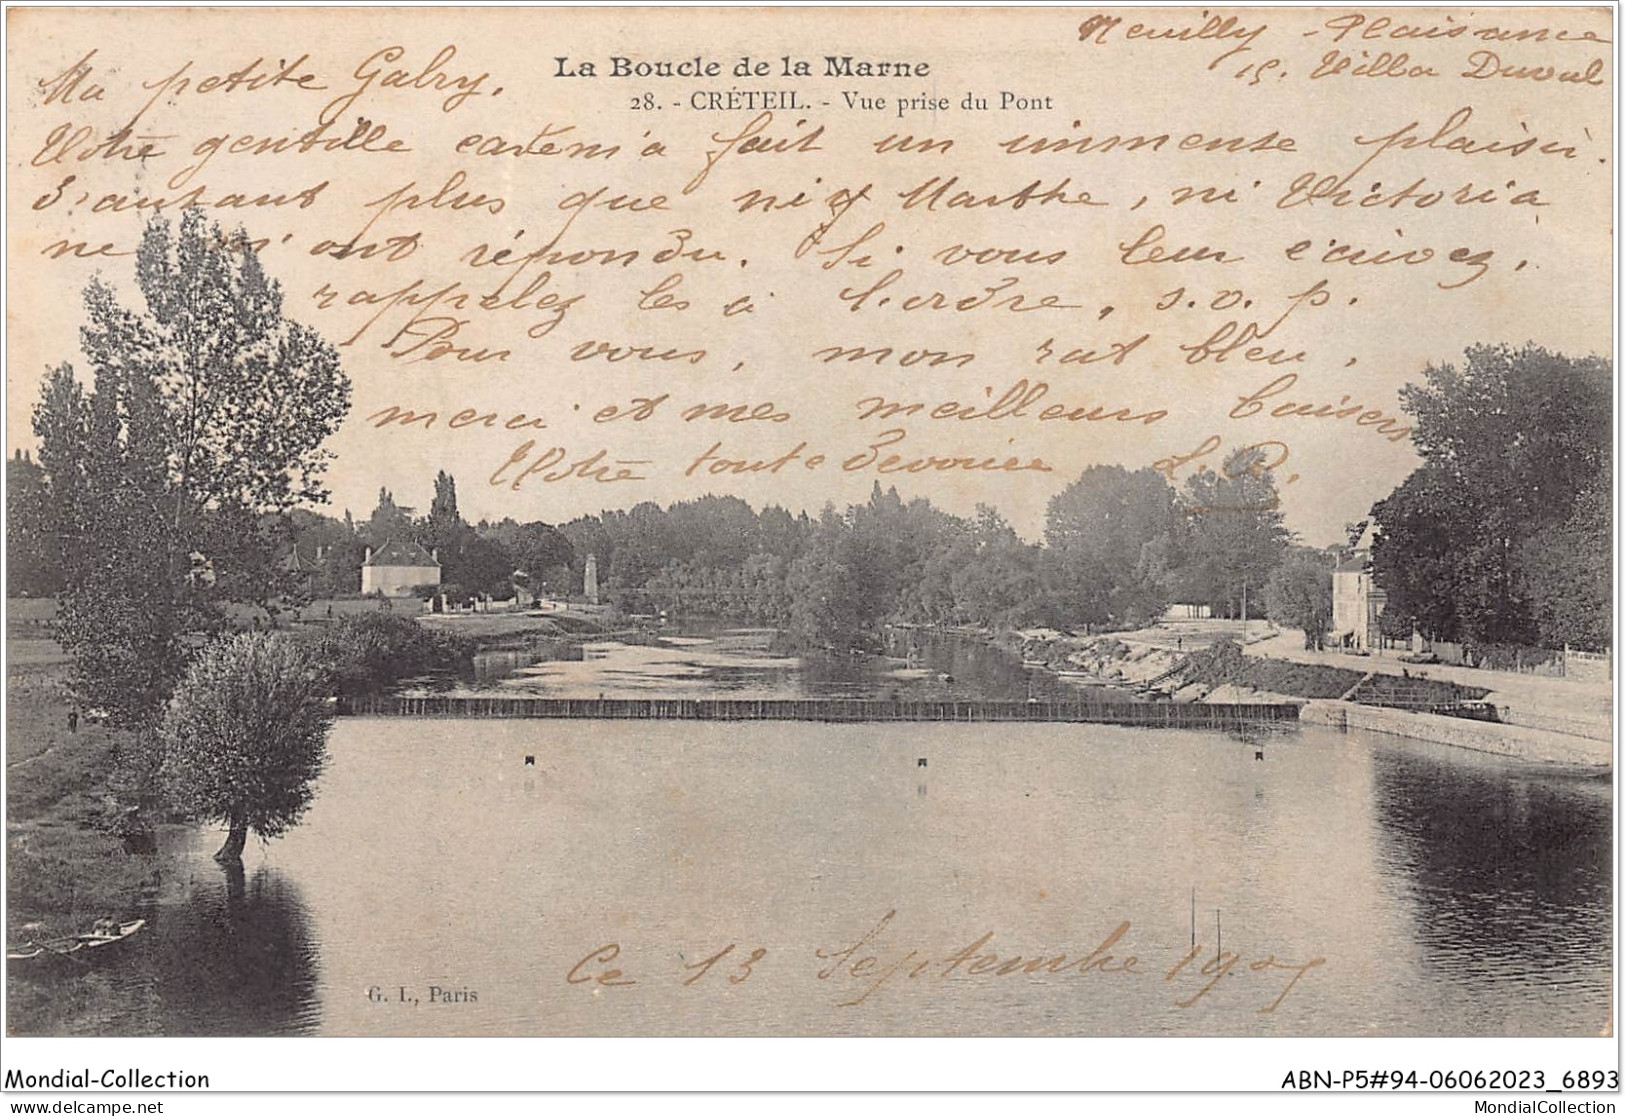 Neuilly-Plaisance
15. Villa Duval
La Boucle de la Marne
28. - CRÉTEIL. - Vue prise du Pont
Ma petite Gabry,
Votre gentille carte m'a fait un immense plaisir.
D'autant plus que ni Marthe, ni Victoria
ne m'ont répondu. Si vous leur écrivez,
rappelez les à l'ordre, s.v.p.
Pour vous, mon rat bleu,
merci et mes meilleurs baisers
Votre toute dévouée L. D.
Ce 13 Septembre 1905
G. I., Paris
Mondial-Collection
ABN-P5#94-06062023_6893
delcampe.net
MondialCollection